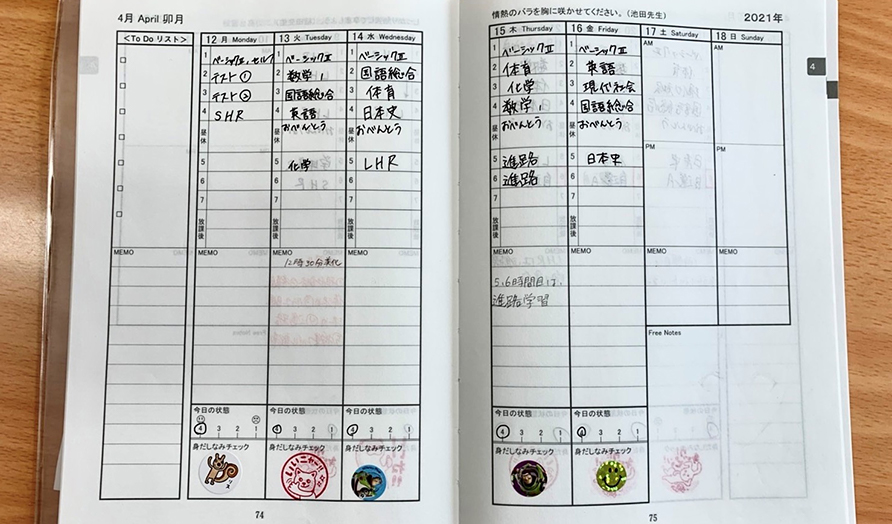 4月 April 卯月
<To Do リスト>
12 月 Monday
13 火 Tuesday
14 水 Wednesday
1 ベーシックⅡ, セルフ
ベーシックⅡ
ベーシックⅡ
2 テスト①
数学,
国語総合
3 テスト②
国語総合
体育
4 SHR
英語
日本史
昼休
おべんとう
おべんとう
5
化学
LHR
6
7
放課後
MEMO
MEMO
MEMO
MEMO
今日の状態
今日の状態
今日の状態
4 3 2 1
4 3 2 1
4 3 2 1
身だしなみチェック
身だしなみチェック
身だしなみチェック
いいニャー!!
74
情熱のバラを胸に咲かせてください。(池田先生)
2021年
15 木 Thursday
16 金 Friday
17 土 Saturday
18 日 Sunday
4
1 ベーシックⅡ
1 ベーシックⅡ
AM
AM
2 体育
2 英語
3 化学
3 現代社会
4 数学,
4 国語総合
昼休 おべんとう
昼休 おべんとう
PM
PM
5 進路
5 日本史
6 進路
6
7
7
放課後
放課後
MEMO
MEMO
MEMO
MEMO
5,6時間目は,
進路学習
Free Notes
今日の状態
今日の状態
4 3 2 1
4 3 2 1
身だしなみチェック
身だしなみチェック
75